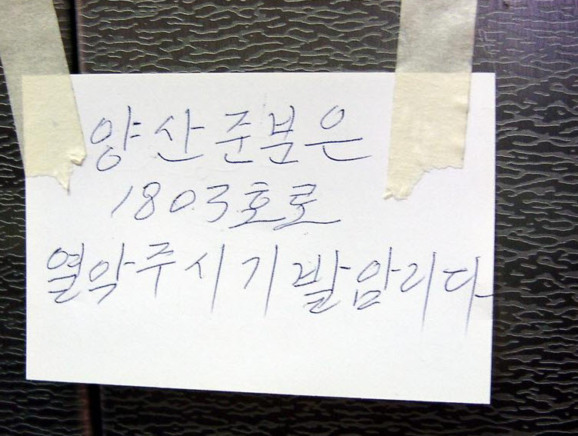 양산준분은
1803호로
열악주시기발암리다